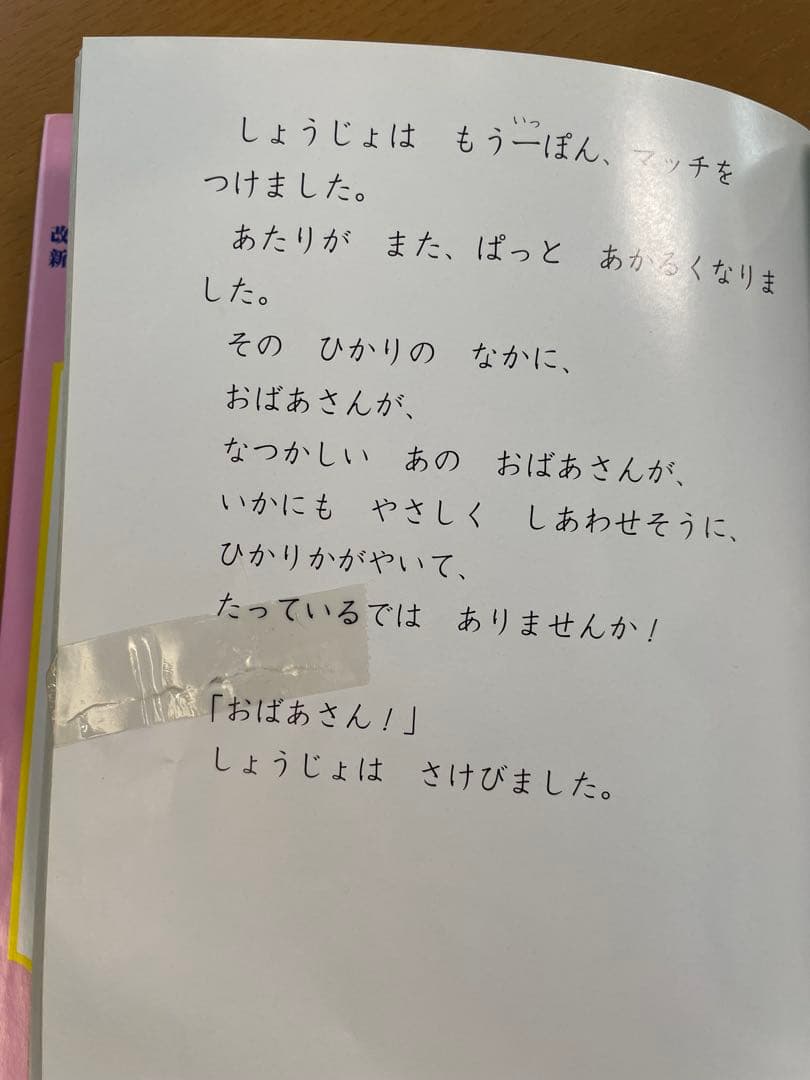 しょうじょは　もう一ぽん、マッチを
いっ
つけました。
あたりが　また、ぱっと　あかるくなりま
した。
その　ひかりの　なかに、
おばあさんが、
なつかしい　あの　おばあさんが、
いかにも　やさしく　しあわせそうに、
ひかりかがやいて、
たっているでは　ありませんか！
「おばあさん！」
しょうじょは　さけびました。
改
新